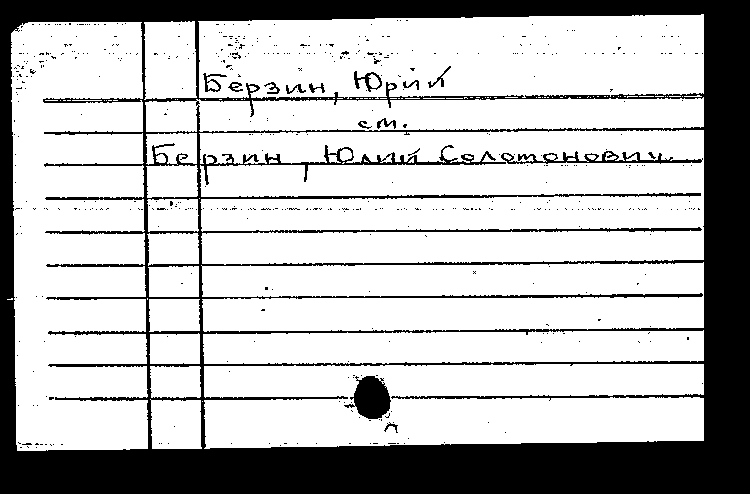 Берзин, Юрий
см.
Берзин, Юлий Соломонович